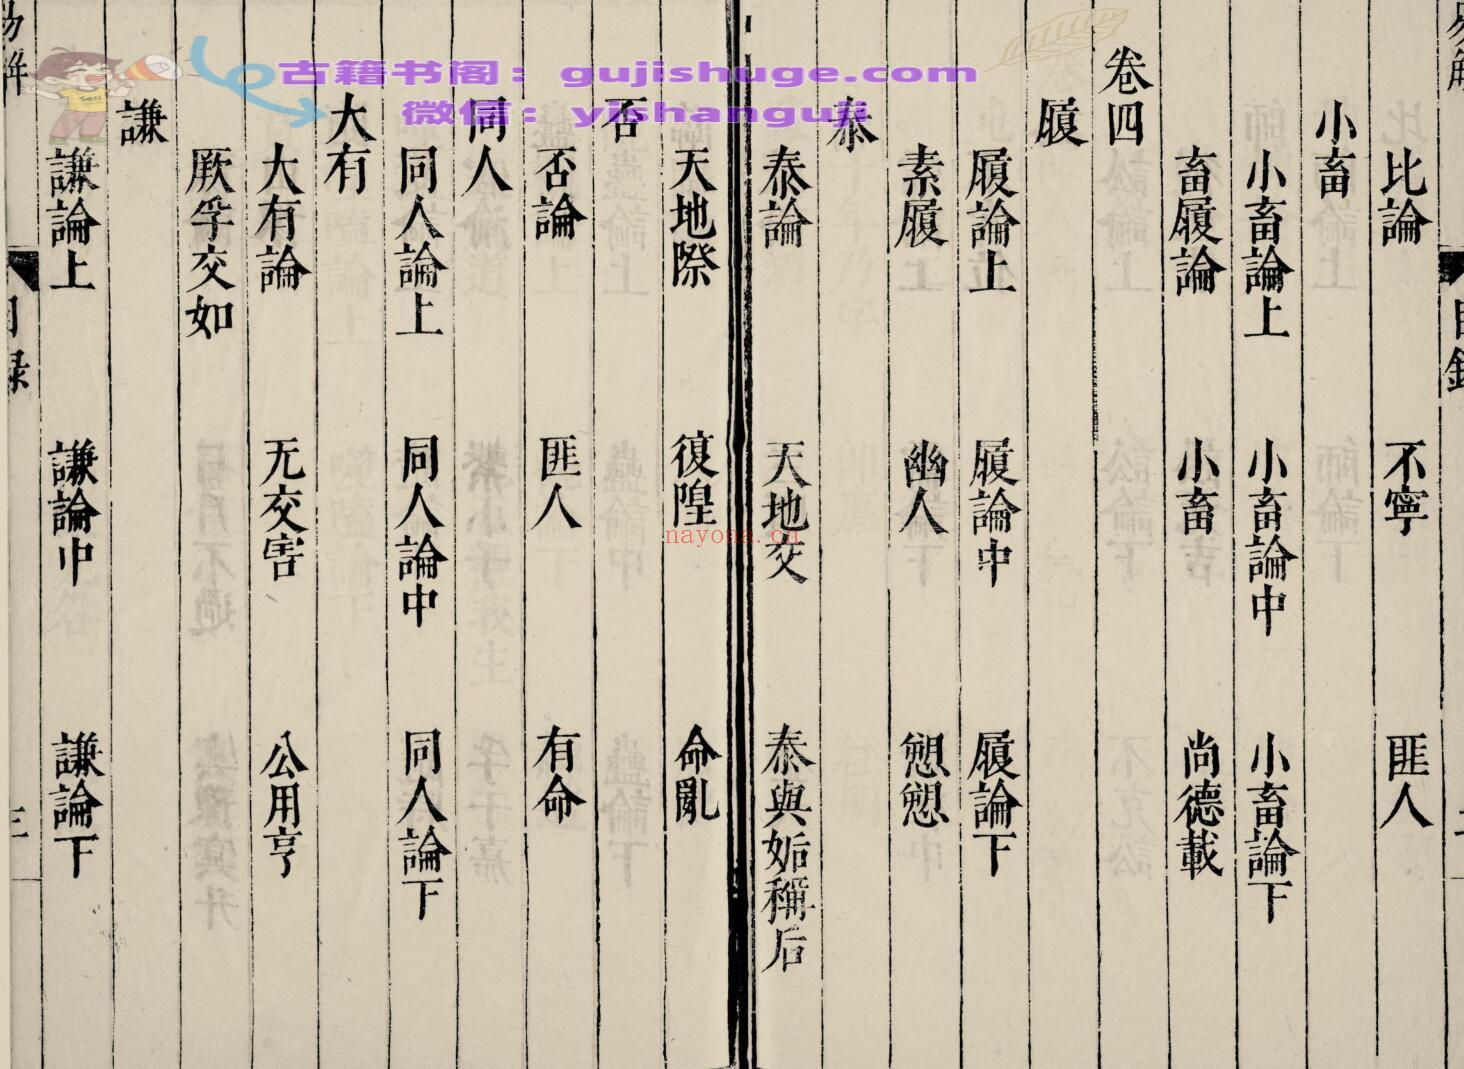 比論 不寧 匪人
小畜
小畜論上 小畜論中 小畜論下
畜履論 小畜 尚德載
卷四
履
履論上 履論中 履論下
素履 幽人 愬愬
泰
泰論 天地交 泰與姤稱后
天地際 復隍 命亂
否
否論 匪人 有命
同人
同人論上 同人論中 同人論下
大有
大有論 无交害 公用亨
厥孚交如
謙
謙論上 謙論中 謙論下
目錄
三
古籍书阁：gujishuge.com
微信：yishanguji
nayona.cn